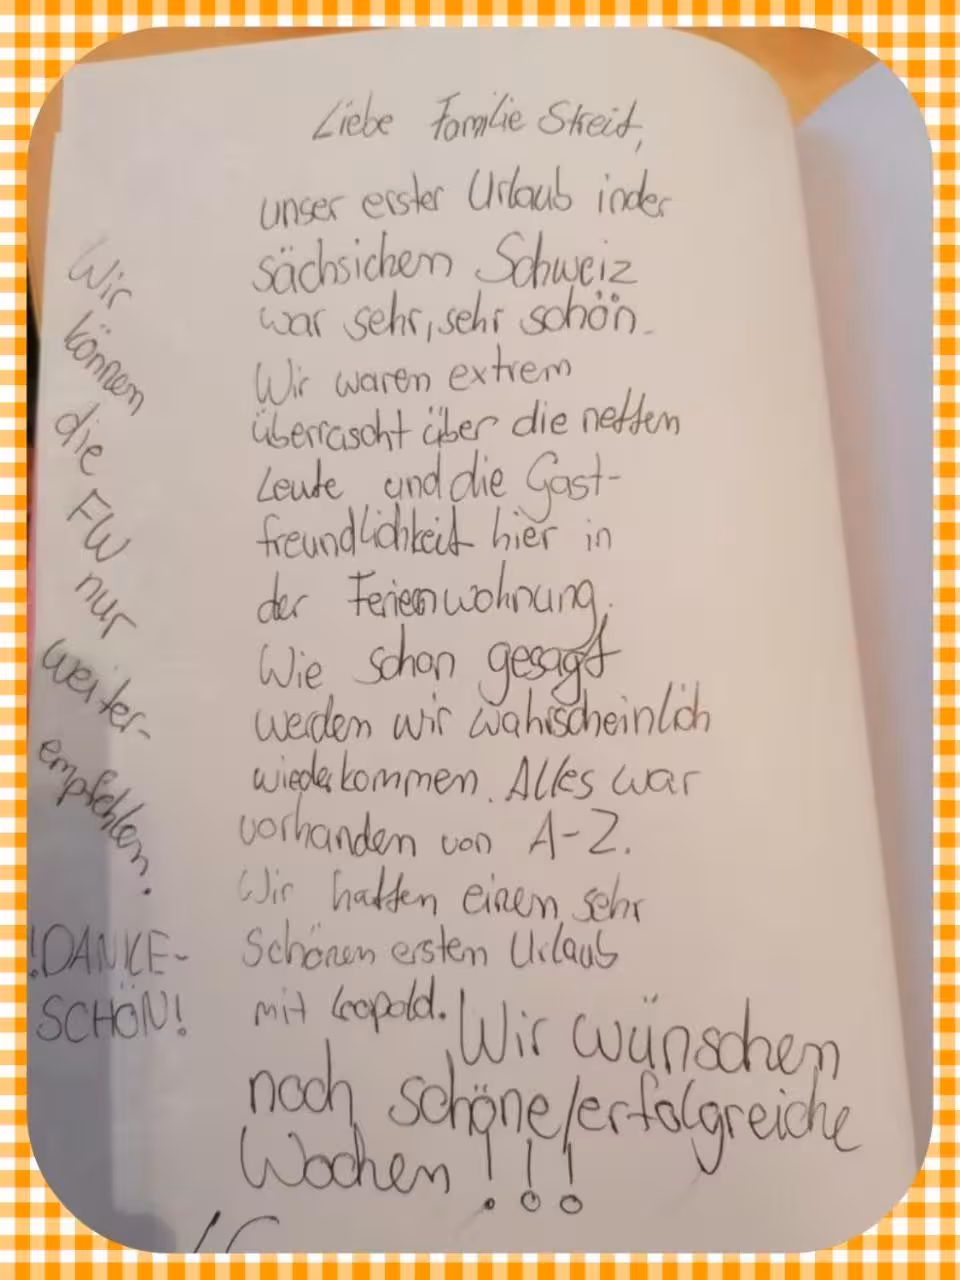 Liebe Familie Streit,
unser erster Urlaub in der
sächsichen Schweiz
war sehr, sehr schön.
Wir waren extrem
überrascht über die netten
Leute und die Gast-
freundlichkeit hier in
der Ferienwohnung.
Wie schon gesagt
werden wir wahrscheinlich
wiederkommen. Alles war
vorhanden von A-Z.
Wir hatten einen sehr
Schönen ersten Urlaub
mit Leopold. Wir wünschen
noch schöne/erfolgreiche
Wochen!!!
Wir
können
die
FW
nur
weiter-
empfehlen.
!DANKE-
SCHÖN!